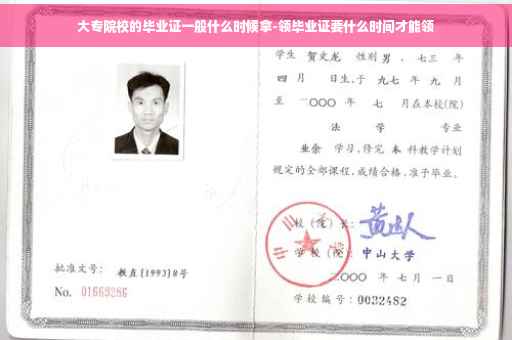 大专院校的毕业证一般什么时候拿-领毕业证要什么时间才能领
学生 贺文龙 性别 男，七三 年
四 月 日生，于 九七 年 九 月
至 二〇〇〇 年 七 月在本校(院)
法 学 专业
业余 学习，修完 本 科教学计划
规定的全部课程，成绩合格，准予毕业。
校（院）长：
学 校（院）：中山大学
二〇〇〇 年 七 月 一 日
学校编号：0032482
批准文号： 教直[1993]8号
No. 01663286